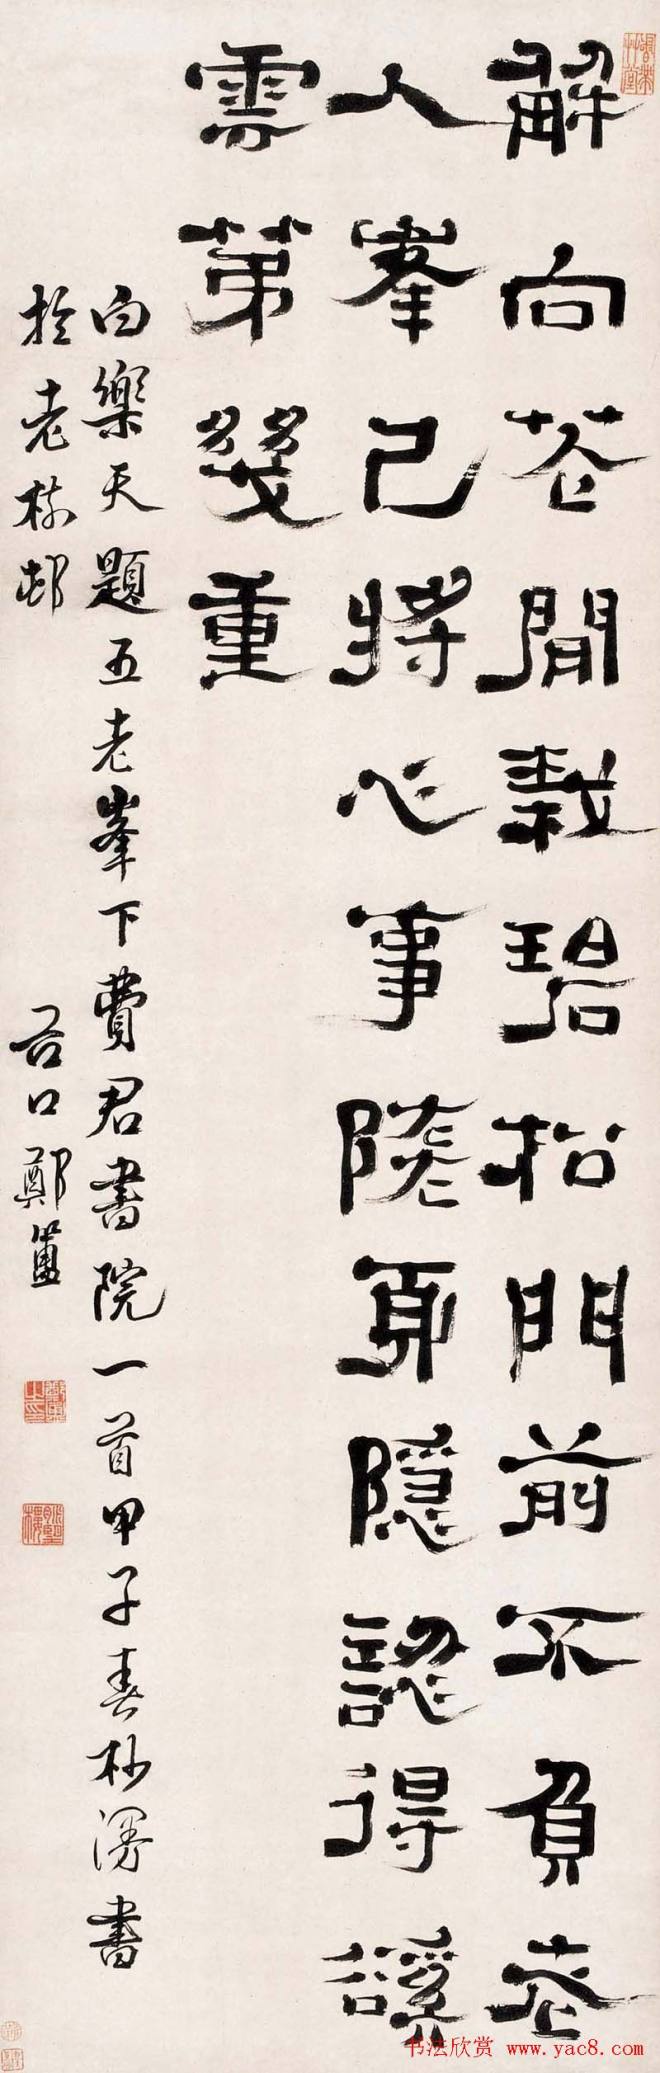 解向花閒栽碧松門前不負老
人峯已將心事隨身隱認得谿
雲第幾重
白樂天題五老峯下費君書院一首甲子春杪漫書
於老邨
谷口鄭簠
鄭簠之印
书法欣赏 www.yac8.com